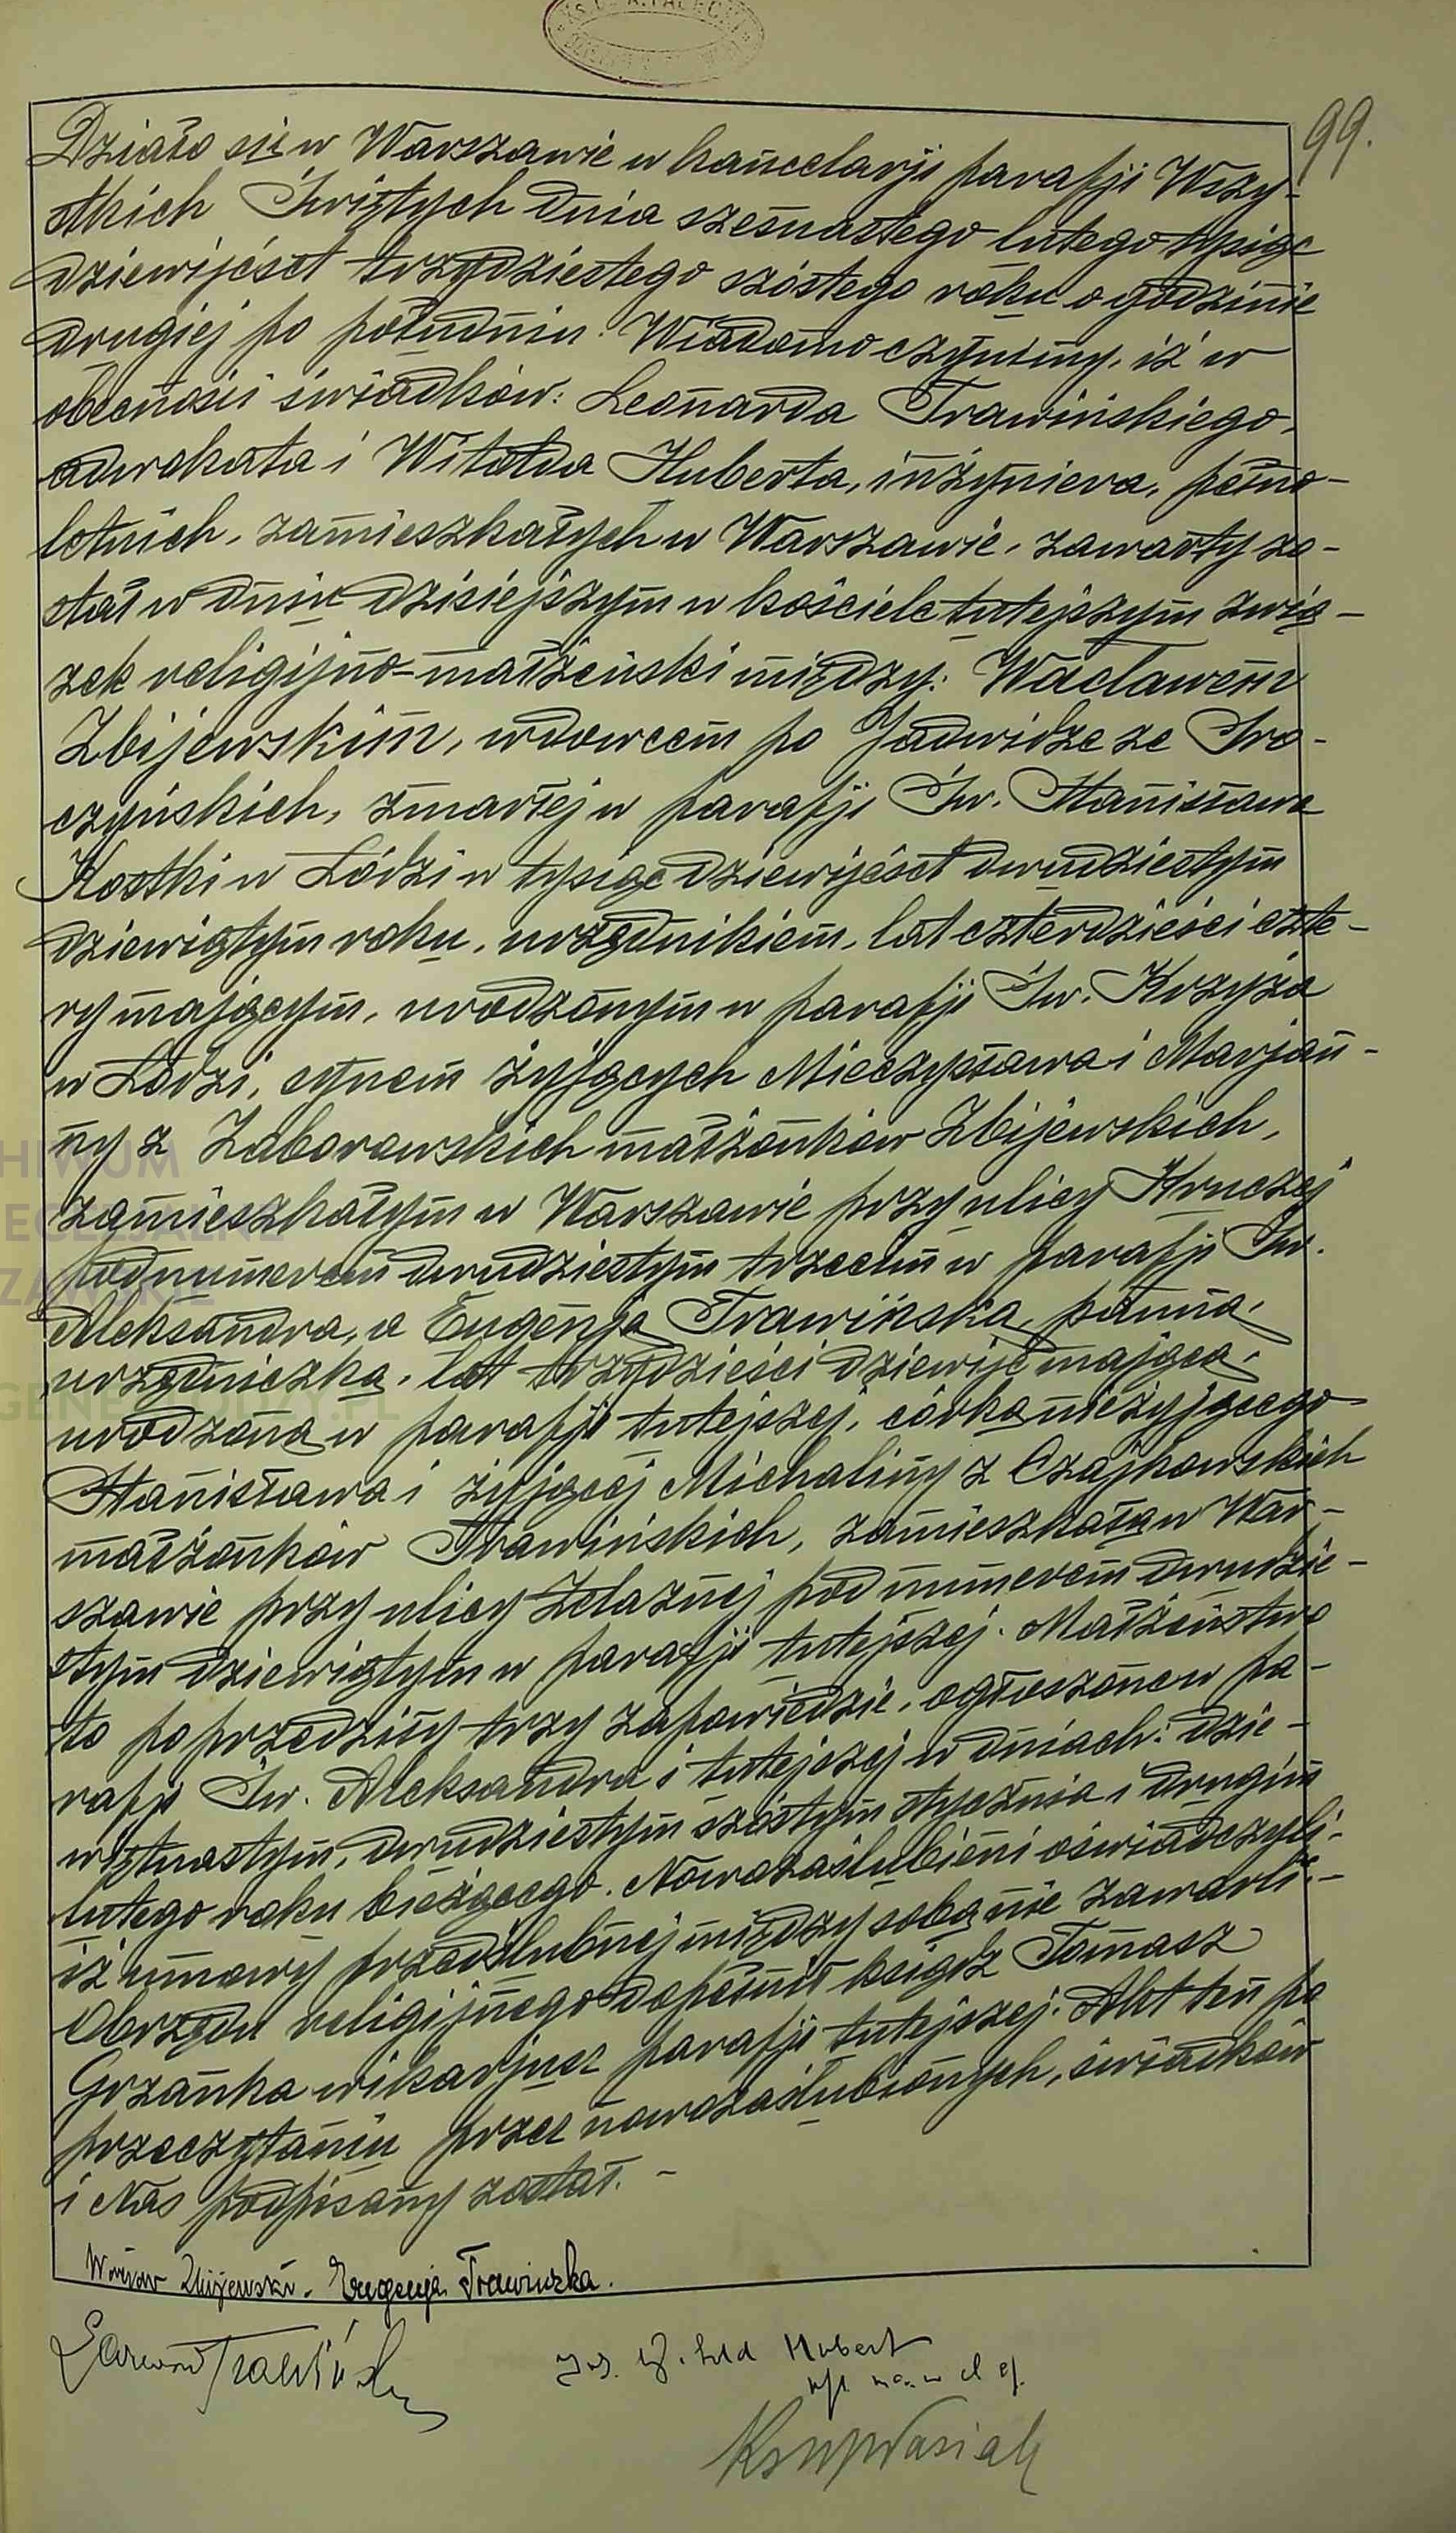 99.
Działo się w Warszawie w kancelarji parafji Wszy-
stkich Świętych dnia szesnastego lutego tysiąc
dziewięćset trzydziestego szóstego roku o godzinie
drugiej po południu. Wiadomo czynimy, iż w
obecności świadków: Leonarda Trawińskiego,
adwokata i Witolda Huberta, inżyniera, pełno-
letnich, zamieszkałych w Warszawie, zawarty zo-
stał w dniu dzisiejszym w kościele tutejszym zwią-
zek religijno-małżeński między: Wacławem
Zbijewskim, wdowcem po Jadwidze ze Sro-
czyńskich, zmarłej w parafji Św. Stanisława
Kostki w Łodzi w tysiąc dziewięćset dwudziestym
dziewiątym roku, urzędnikiem, lat czterdzieści czte-
ry mającym, urodzonym w parafji Św. Krzyża
w Łodzi, synem żyjących Mieczysława i Marjan-
ny z Zaborowskich małżonków Zbijewskich,
zamieszkałym w Warszawie przy ulicy Kruczej
pod numerem dwudziestym trzecim w parafji Św.
Aleksandra, a Eugenją Trawińską, panną,
urzędniczką, lat trzydzieści dziewięć mającą,
urodzoną w parafji tutejszej, córką nieżyjącego
Stanisława i żyjącej Michaliny z Czajkowskich
małżonków Trawińskich, zamieszkałą w War-
szawie przy ulicy Żelaznej pod numerem dwudzie-
stym dziewiątym w parafji tutejszej. Małżeństwo
to poprzedziły trzy zapowiedzie, ogłoszone w pa-
rafji Św. Aleksandra i tutejszej w dniach: dzie-
więtnastym, dwudziestym szóstym stycznia i drugim
lutego roku bieżącego. Nowozaślubieni oświadczyli,
iż umowy przedślubnej między sobą nie zawarli.-
Obrzędu religijnego dopełnił ksiądz Tomasz
Grzanka wikarjusz parafji tutejszej. Akt ten po
przeczytaniu przez nowozaślubionych, świadków
i Nas podpisany został. -
Wacław Zbijewski. Eugenja Trawińska.
Leonard Trawiński
Hubert